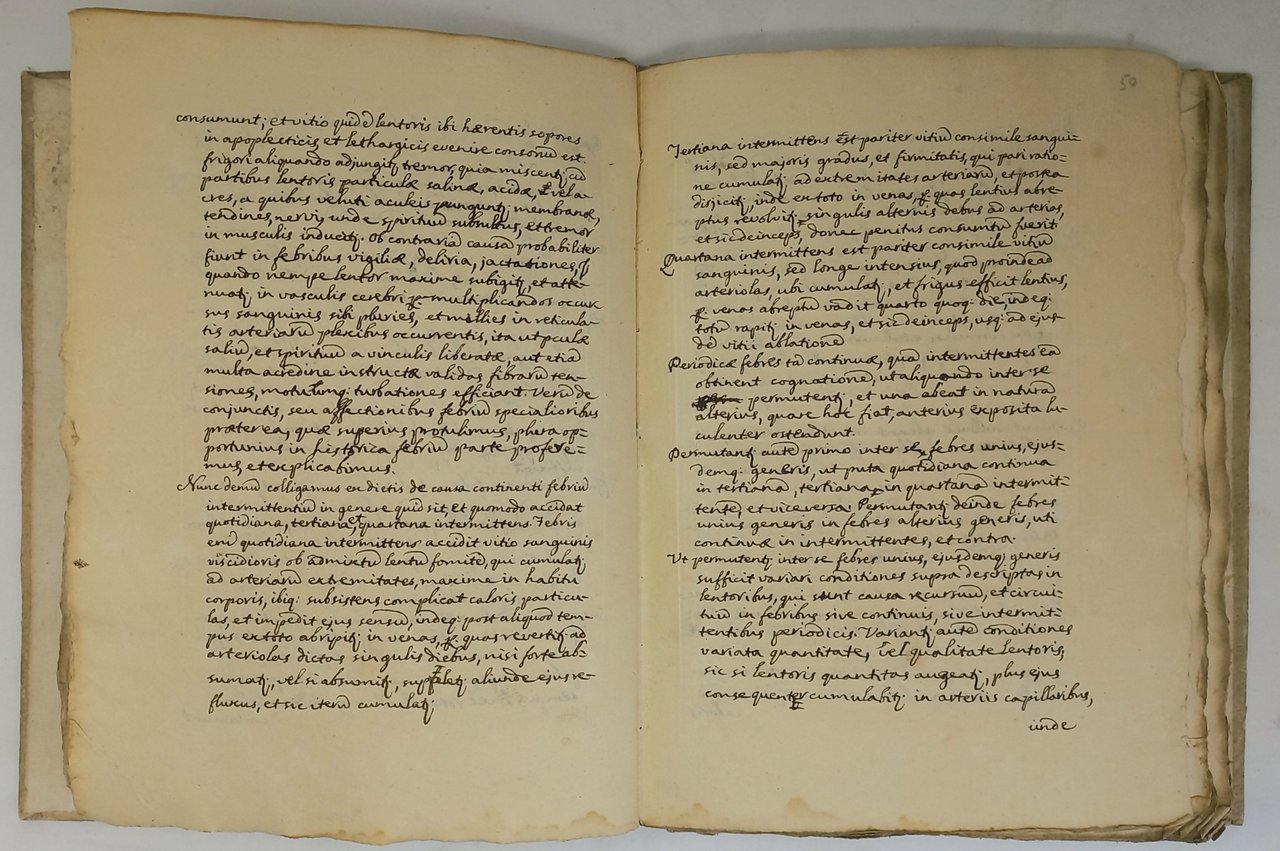 consumunt; et vitio quidē lentoris ibi hærentis sopores
in apoplecticis et lethargicis evenire consonū est.
frigori aliquando adjungitʒ tremor, quia miscentʒ cū
partibus lentoris particulæ salinæ, acidæ, et vel a-
cres, a quibus veluti aculeis pungunt, membranæ,
tendines, nervi, unde spirituū subsultus, et tremor
in musculis inducitʒ. Ob contrariā causā probabiliter
fiunt in febribus vigiliæ, deliria, jactationes,
quando nempe lentor maxime subigitʒ, et atte-
nuatʒ in vasculis cerebri multiplicandos occur
sus sanguinis sibi pluries, et millies in reticula-
tis arteriarū plexibus occurrentis, ita ut pculæ
saliū, et spirituū a vinculis liberatæ, aut etiā
multa acredine instructæ validas fibrarū ten-
siones, motuūmqʒ turbationes efficiant. Verū de
conjunctis, seu affectionibus febriū specialioribus
præterea, quæ superius protulimus, plura op-
portunius in historica febriū parte profere-
mus, et explicabimus.
Nunc demū colligamus ex dictis de causa continenti febriū
intermittentiū in genere quid sit, et quomodo accidat
quotidiana, tertiana, et quartana intermittens. Febris
enī quotidiana intermittens accidit vitio sanguinis
viscidioris ob admixtū lentū fomitē, qui cumulatʒ
ad arteriarū extremitates, maxime in habitu
corporis, ibiqʒ subsistens complicat caloris particu-
las, et impedit ejus sensū, indeqʒ post aliquod tem-
pus ex toto abripitʒ in venas, ꝑ quas revertitʒ ad
arteriolas dictas singulis diebus, nisi forte ab-
sumatʒ, vel si absumitʒ, suppletʒ aliunde ejus re-
fluxus, et sic iterū cumulatʒ
50
Tertiana intermittens est pariter vitiū consimile sangui-
nis, sed majoris gradus, et firmitatis, qui pari ratio-
ne cumulatʒ ad extremitates arteriarū, et postea
disjicitʒ, inde ex toto in venas, ꝑ quas lentius abre-
ptus revolvitʒ singulis alternis debus ad arterias,
et sic deinceps, donec penitus consumtū fuerit.
Quartana intermittens est pariter consimile vitiū
sanguinis, sed longe intensius, quod proinde ad
arteriolas, ubi cumulatʒ, et frigus efficit lentius,
ꝑ venas abreptū vadit quarto quoqʒ die, indeqʒ
totū rapitʒ in venas, et sic deinceps, usqʒ ad ejus-
dē vitii ablationē
Periodicæ febres tā continuæ, quā intermittentes eā
obtinent cognationē, ut aliquando inter se
permutentʒ, et una abeat in naturā
alterius, quare hoc fiat, anterius exposita lu-
culenter ostendunt.
Permutantʒ autē primo inter se febres unius, ejus-
demqʒ generis, ut puta quotidiana continua
in tertianā, tertiana in quartanā intermit-
tentē, et viceversa. Permutantʒ deinde febres
unius generis in febres alterius generis, uti
continuæ in intermittentes, et contra.
Ut permutentʒ inter se febres unius, ejusdemqʒ generis
sufficit variari conditiones supra descriptas in
lentoribus, qui sunt causa recursuū, et circui-
tuū in febribus sive continuis, sive intermit-
tentibus periodicis. Variantʒ autē conditiones
variata quantitate, vel qualitate lentoris;
sic si lentoris quantitas augeatʒ, plus ejus
consequenter cumulabitʒ in arteriis capillaribus,
unde